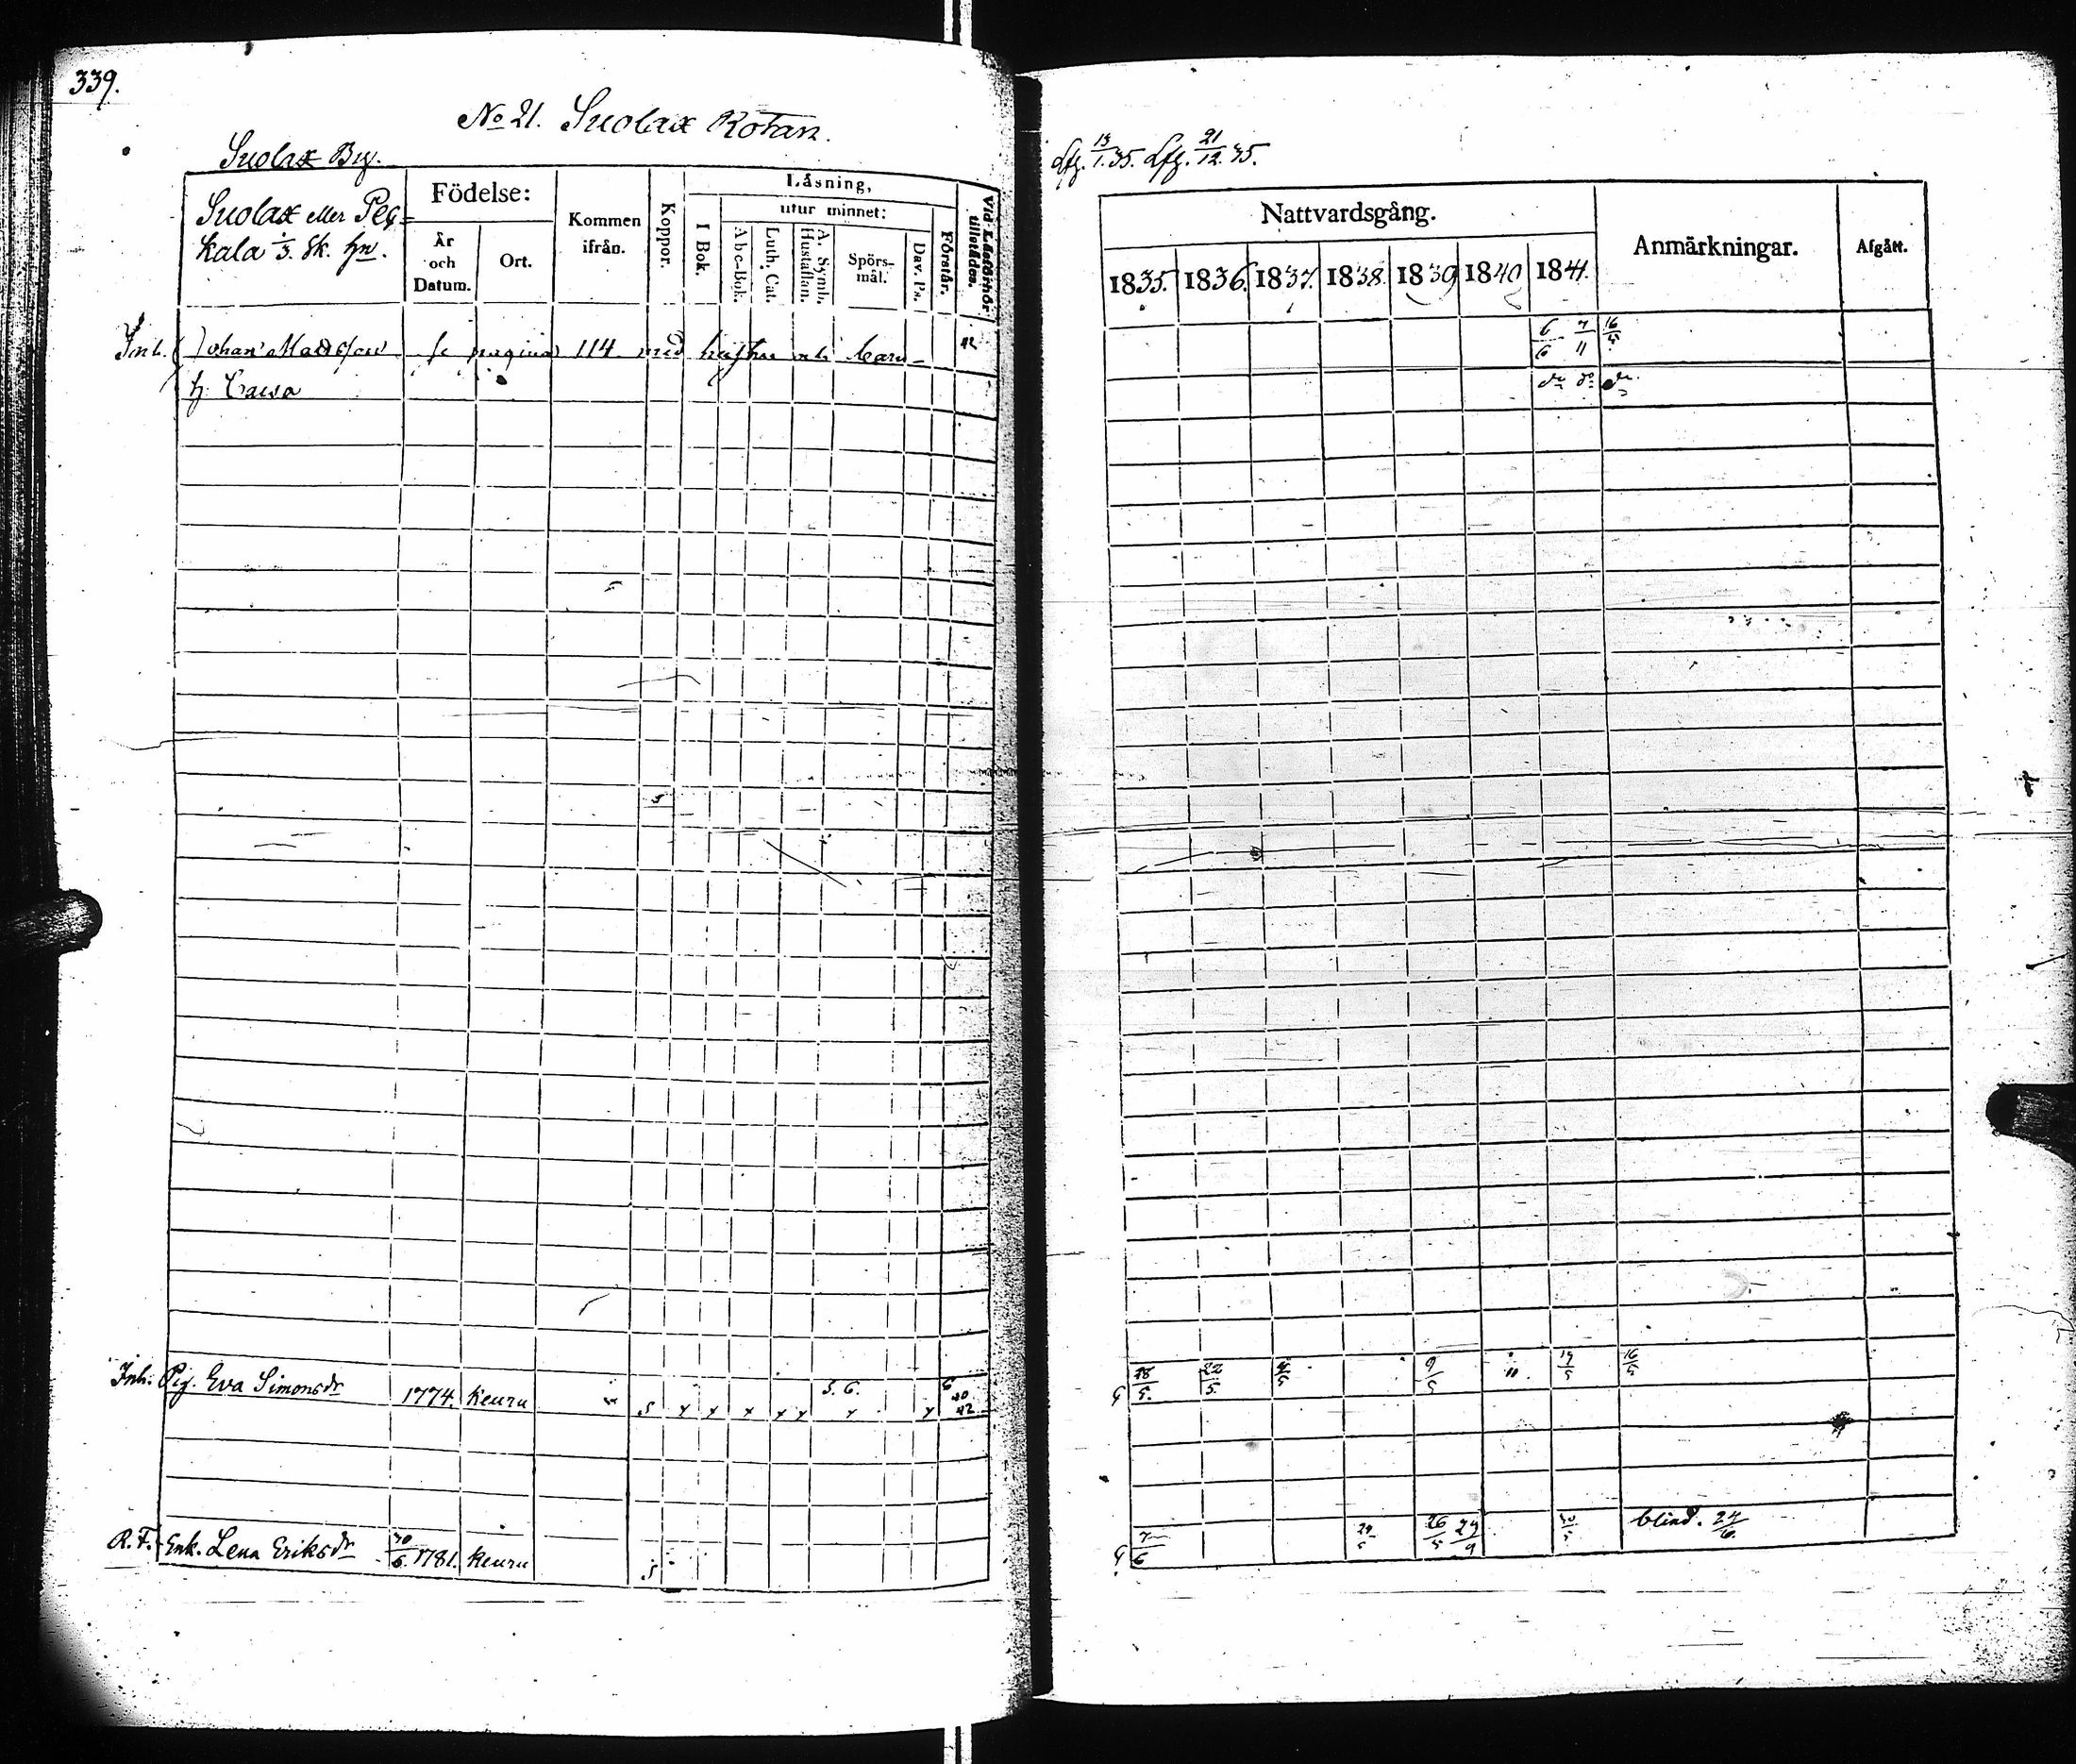 339.
No 21. Suolax Rotan.
Suolax By.
Suolax eller Pek=
kala 1/3. sk. hn.
Födelse:
År och Datum.
Ort.
Kommen ifrån.
Koppor.
Läsning,
I Bok.
utur minnet:
Abc-Bok.
Luth. Cat.
A. Symb. Hustaflan.
Spörs-mål.
Dav. Ps.
Förstår.
Vid Läseförhör tillstädes.
Inh. Johan Mattsson se pagina 114 med hustru och barn 42
h. Caisa
Inh. Pig. Eva Simonsdr 1774. Keuru s x x x x x 5. 6. x x 6 40 42
R. F. Enk. Lena Eriksdr 30/6 1781. Keuru s
Lfg. 13/1. 35. Lfg. 21/12. 35.
Nattvardsgång.
Anmärkningar.
Afgått.
1835. 1836. 1837. 1838. 1839 1840 1841.
6/6 7/11 16/5
do do do
G 28/5. 22/5. 9/5 11. 19/5 16/5
G 7/6 29/5 26/5 29/9 30/5 blind. 24/6.